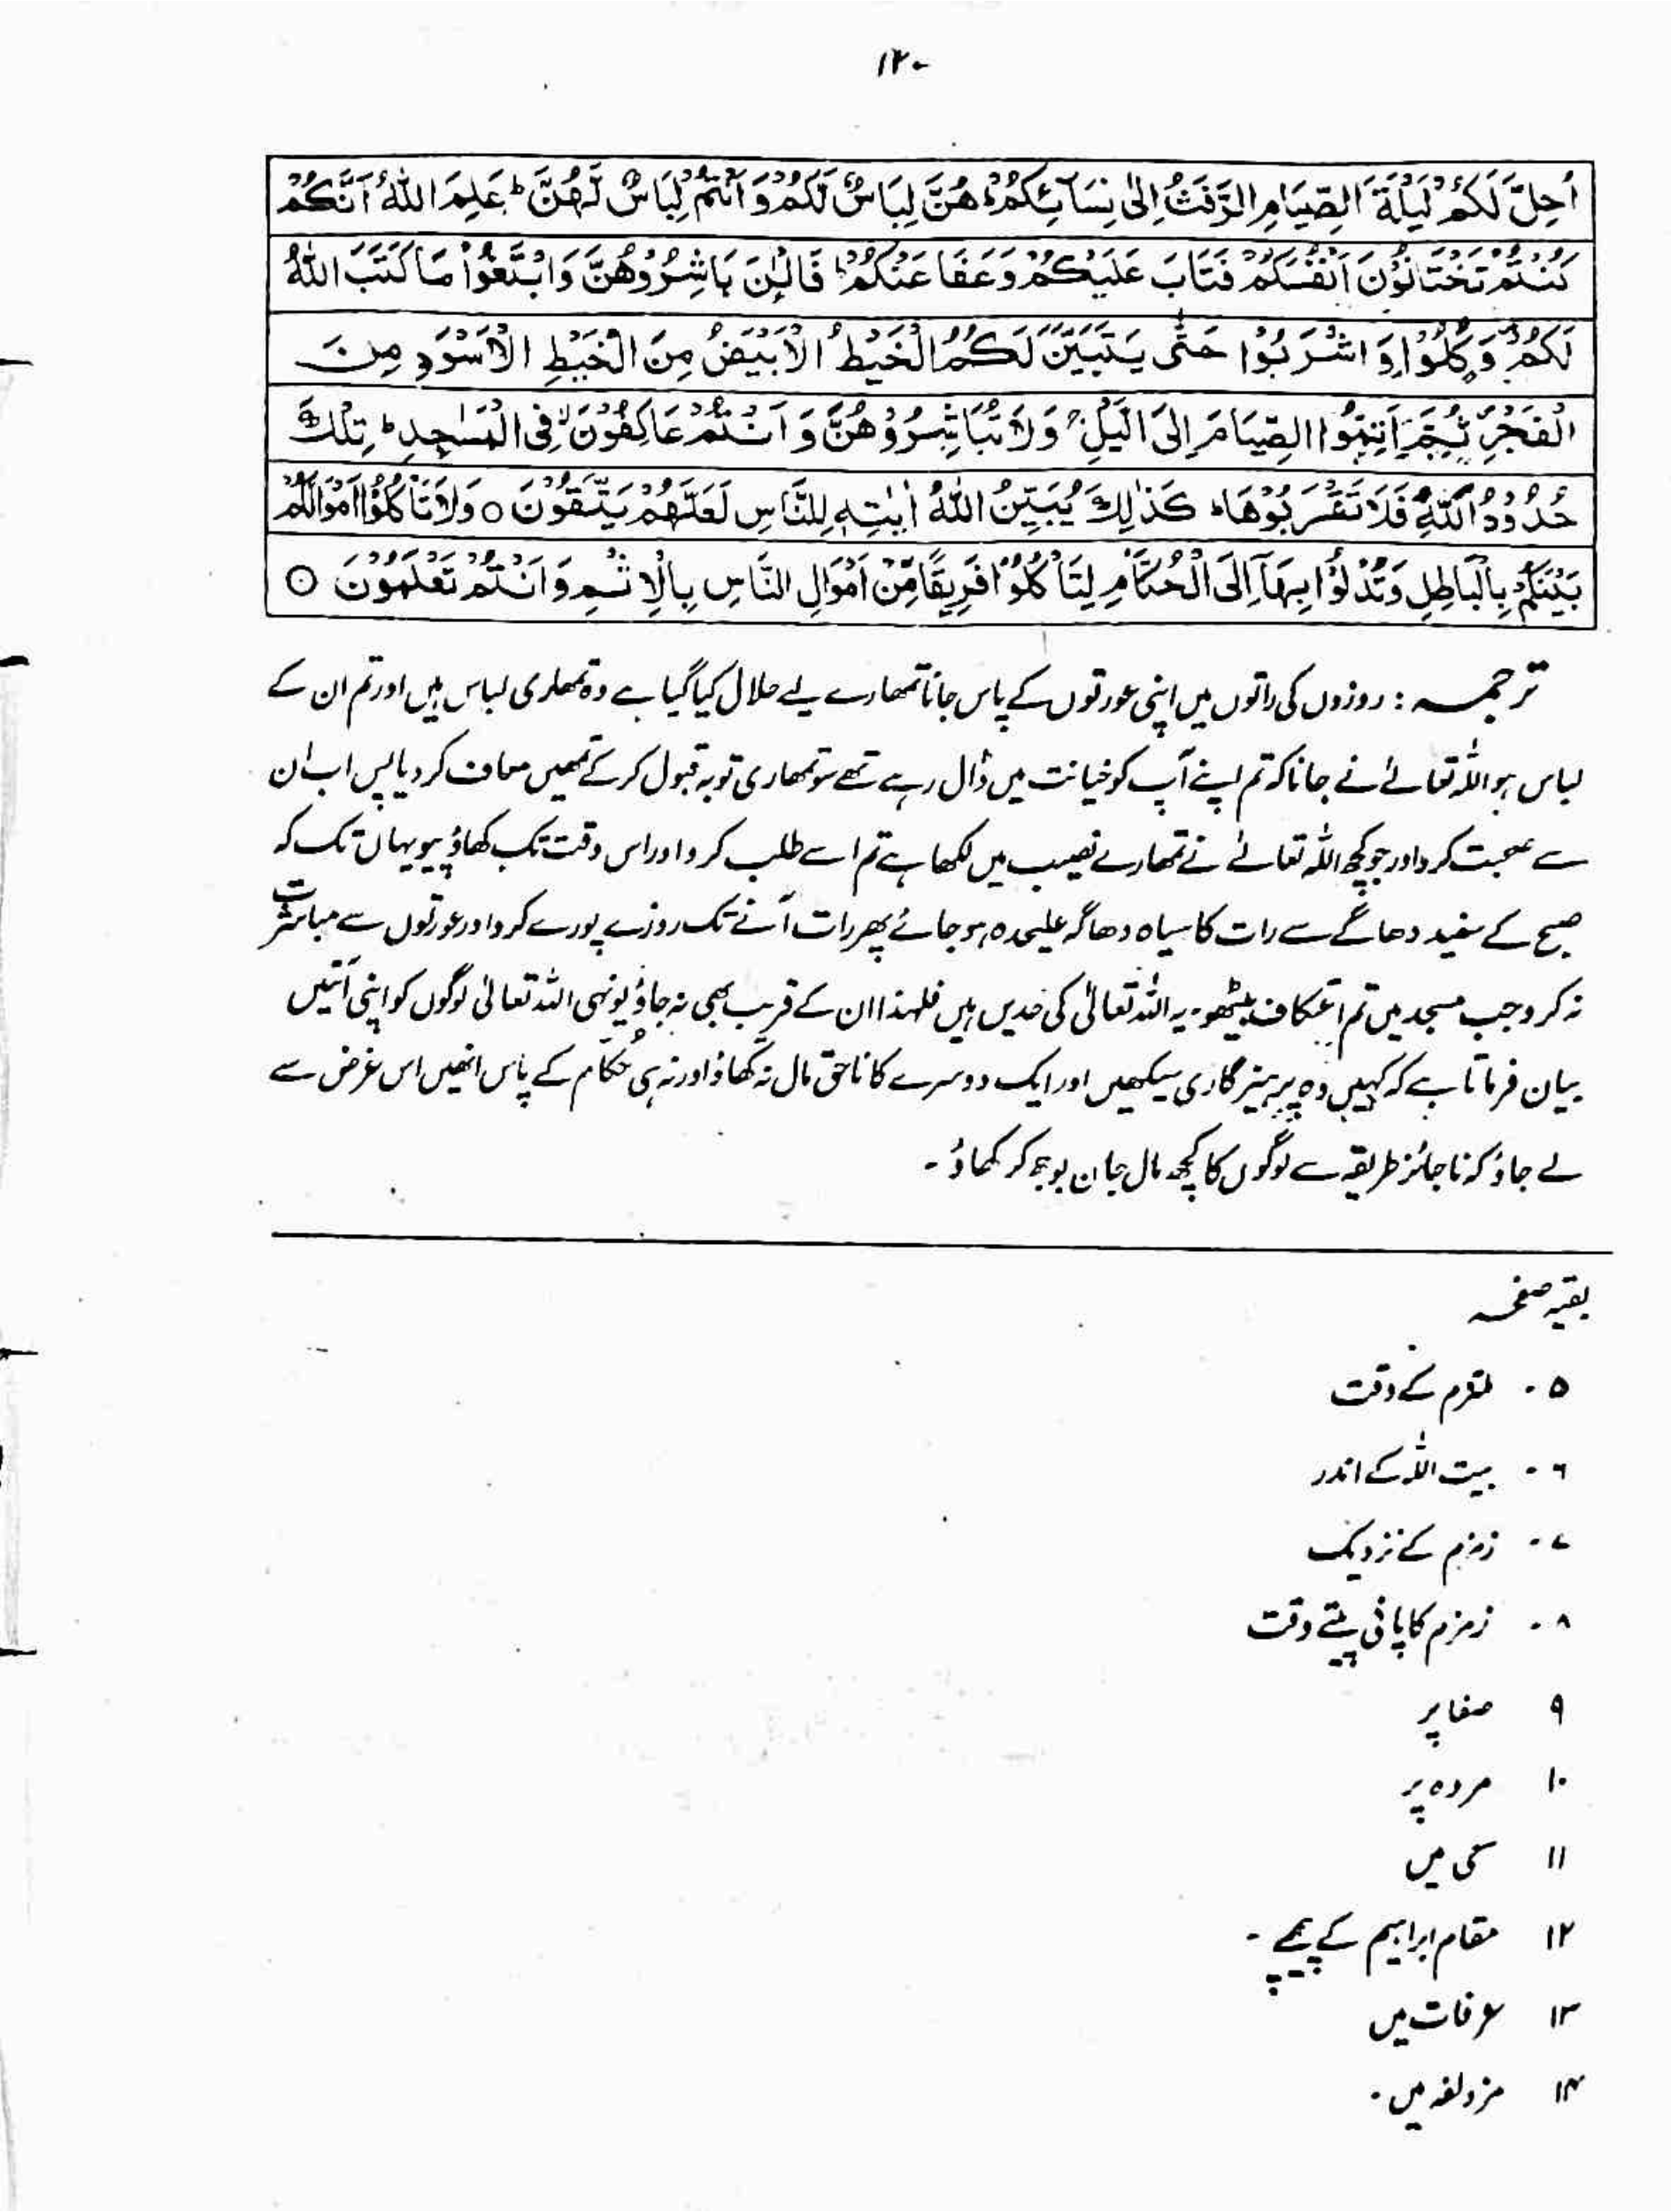 ۱۲۰
اُحِلَّ لَكُمْ لَيْلَةَ الصِّيَامِ الرَّفَثُ اِلٰى نِسَآئِكُمْ ؕ هُنَّ لِبَاسٌ لَّكُمْ وَاَنْتُمْ لِبَاسٌ لَّهُنَّ ؕ عَلِمَ اللّٰهُ اَنَّكُمْ
كُنْتُمْ تَخْتَانُوْنَ اَنْفُسَكُمْ فَتَابَ عَلَيْكُمْ وَعَفَا عَنْكُمْ ۚ فَالْـٰٔنَ بَاشِرُوْهُنَّ وَابْتَغُوْا مَا كَتَبَ اللّٰهُ
لَكُمْ ۪ وَكُلُوْا وَاشْرَبُوْا حَتّٰى يَتَبَيَّنَ لَكُمُ الْخَيْطُ الْاَبْيَضُ مِنَ الْخَيْطِ الْاَسْوَدِ مِنَ
الْفَجْرِ ۪ ثُمَّ اَتِمُّوا الصِّيَامَ اِلَى الَّيْلِ ۚ وَلَا تُبَاشِرُوْهُنَّ وَاَنْتُمْ عَاكِفُوْنَ ۙ فِى الْمَسٰجِدِ ؕ تِلْكَ
حُدُوْدُ اللّٰهِ فَلَا تَقْرَبُوْهَا ؕ كَذٰلِكَ يُبَيِّنُ اللّٰهُ اٰيٰتِهٖ لِلنَّاسِ لَعَلَّهُمْ يَتَّقُوْنَ ○ وَلَا تَاْكُلُوْا اَمْوَالَكُمْ
بَيْنَكُمْ بِالْبَاطِلِ وَتُدْلُوْا بِهَآ اِلَى الْحُكَّامِ لِتَاْكُلُوْا فَرِيْقًا مِّنْ اَمْوَالِ النَّاسِ بِالْاِثْمِ وَاَنْتُمْ تَعْلَمُوْنَ ○
ترجمہ : روزوں کی راتوں میں اپنی عورتوں کے پاس جانا تمھارے لیے حلال کیا گیا ہے وہ تمھاری لباس ہیں اور تم ان کے
لباس ہو اللہ تعالےٰ نے جانا کہ تم اپنے آپ کو خیانت میں ڈال رہے تھے سو تمھاری توبہ قبول کر کے تمھیں معاف کر دیا پس اب ان
سے صحبت کرو اور جو کچھ اللہ تعالےٰ نے تمھارے نصیب میں لکھا ہے تم اسے طلب کرو اور اس وقت تک کھاؤ پیو یہاں تک کہ
صبح کے سفید دھاگے سے رات کا سیاہ دھاگہ علیحدہ ہو جائے پھر رات آنے تک روزے پورے کرو اور عورتوں سے مباشرت
نہ کرو جب مسجد میں تم اعتکاف بیٹھو۔ یہ اللہ تعالیٰ کی حدیں ہیں فلہذا ان کے قریب بھی نہ جاؤ یونہی اللہ تعالیٰ لوگوں کو اپنی آیتیں
بیان فرماتا ہے کہ کہیں وہ پرہیز گاری سیکھیں اور ایک دوسرے کا ناحق مال نہ کھاؤ اور نہ ہی حُکام کے پاس انھیں اس غرض سے
لے جاؤ کہ ناجائز طریقہ سے لوگوں کا کچھ مال جان بوجھ کر کھاؤ ۔
بقیہ صفحہ
۵ ۔ ملتزم کے وقت
۶ ۔ بیت اللہ کے اندر
۷ ۔ زمزم کے نزدیک
۸ ۔ زمزم کا پانی پیتے وقت
۹ صفا پر
۱۰ مروہ پر
۱۱ سعی میں
۱۲ مقام ابراہیم کے پیچھے ۔
۱۳ عرفات میں
۱۴ مزدلفہ میں ۔